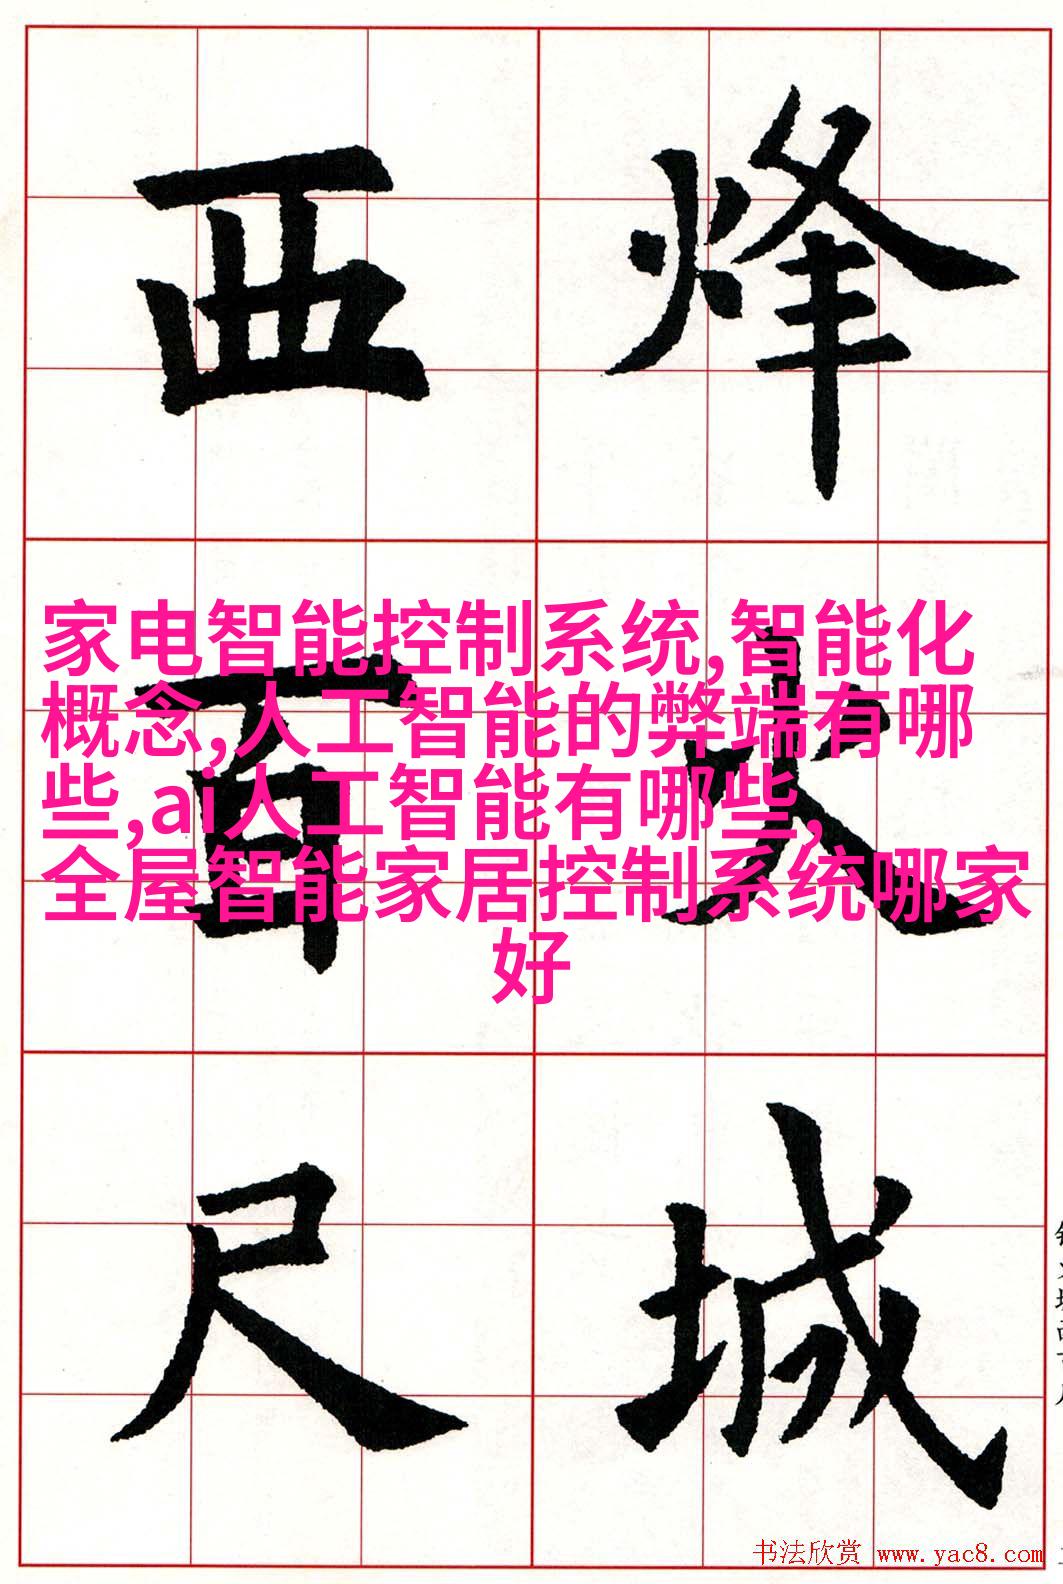 烽火城
西百尺
家电智能控制系统,智能化
概念,人工智能的弊端有哪
些,ai人工智能有哪些,
全屋智能家居控制系统哪家
好
书法欣赏 www.yac8.com